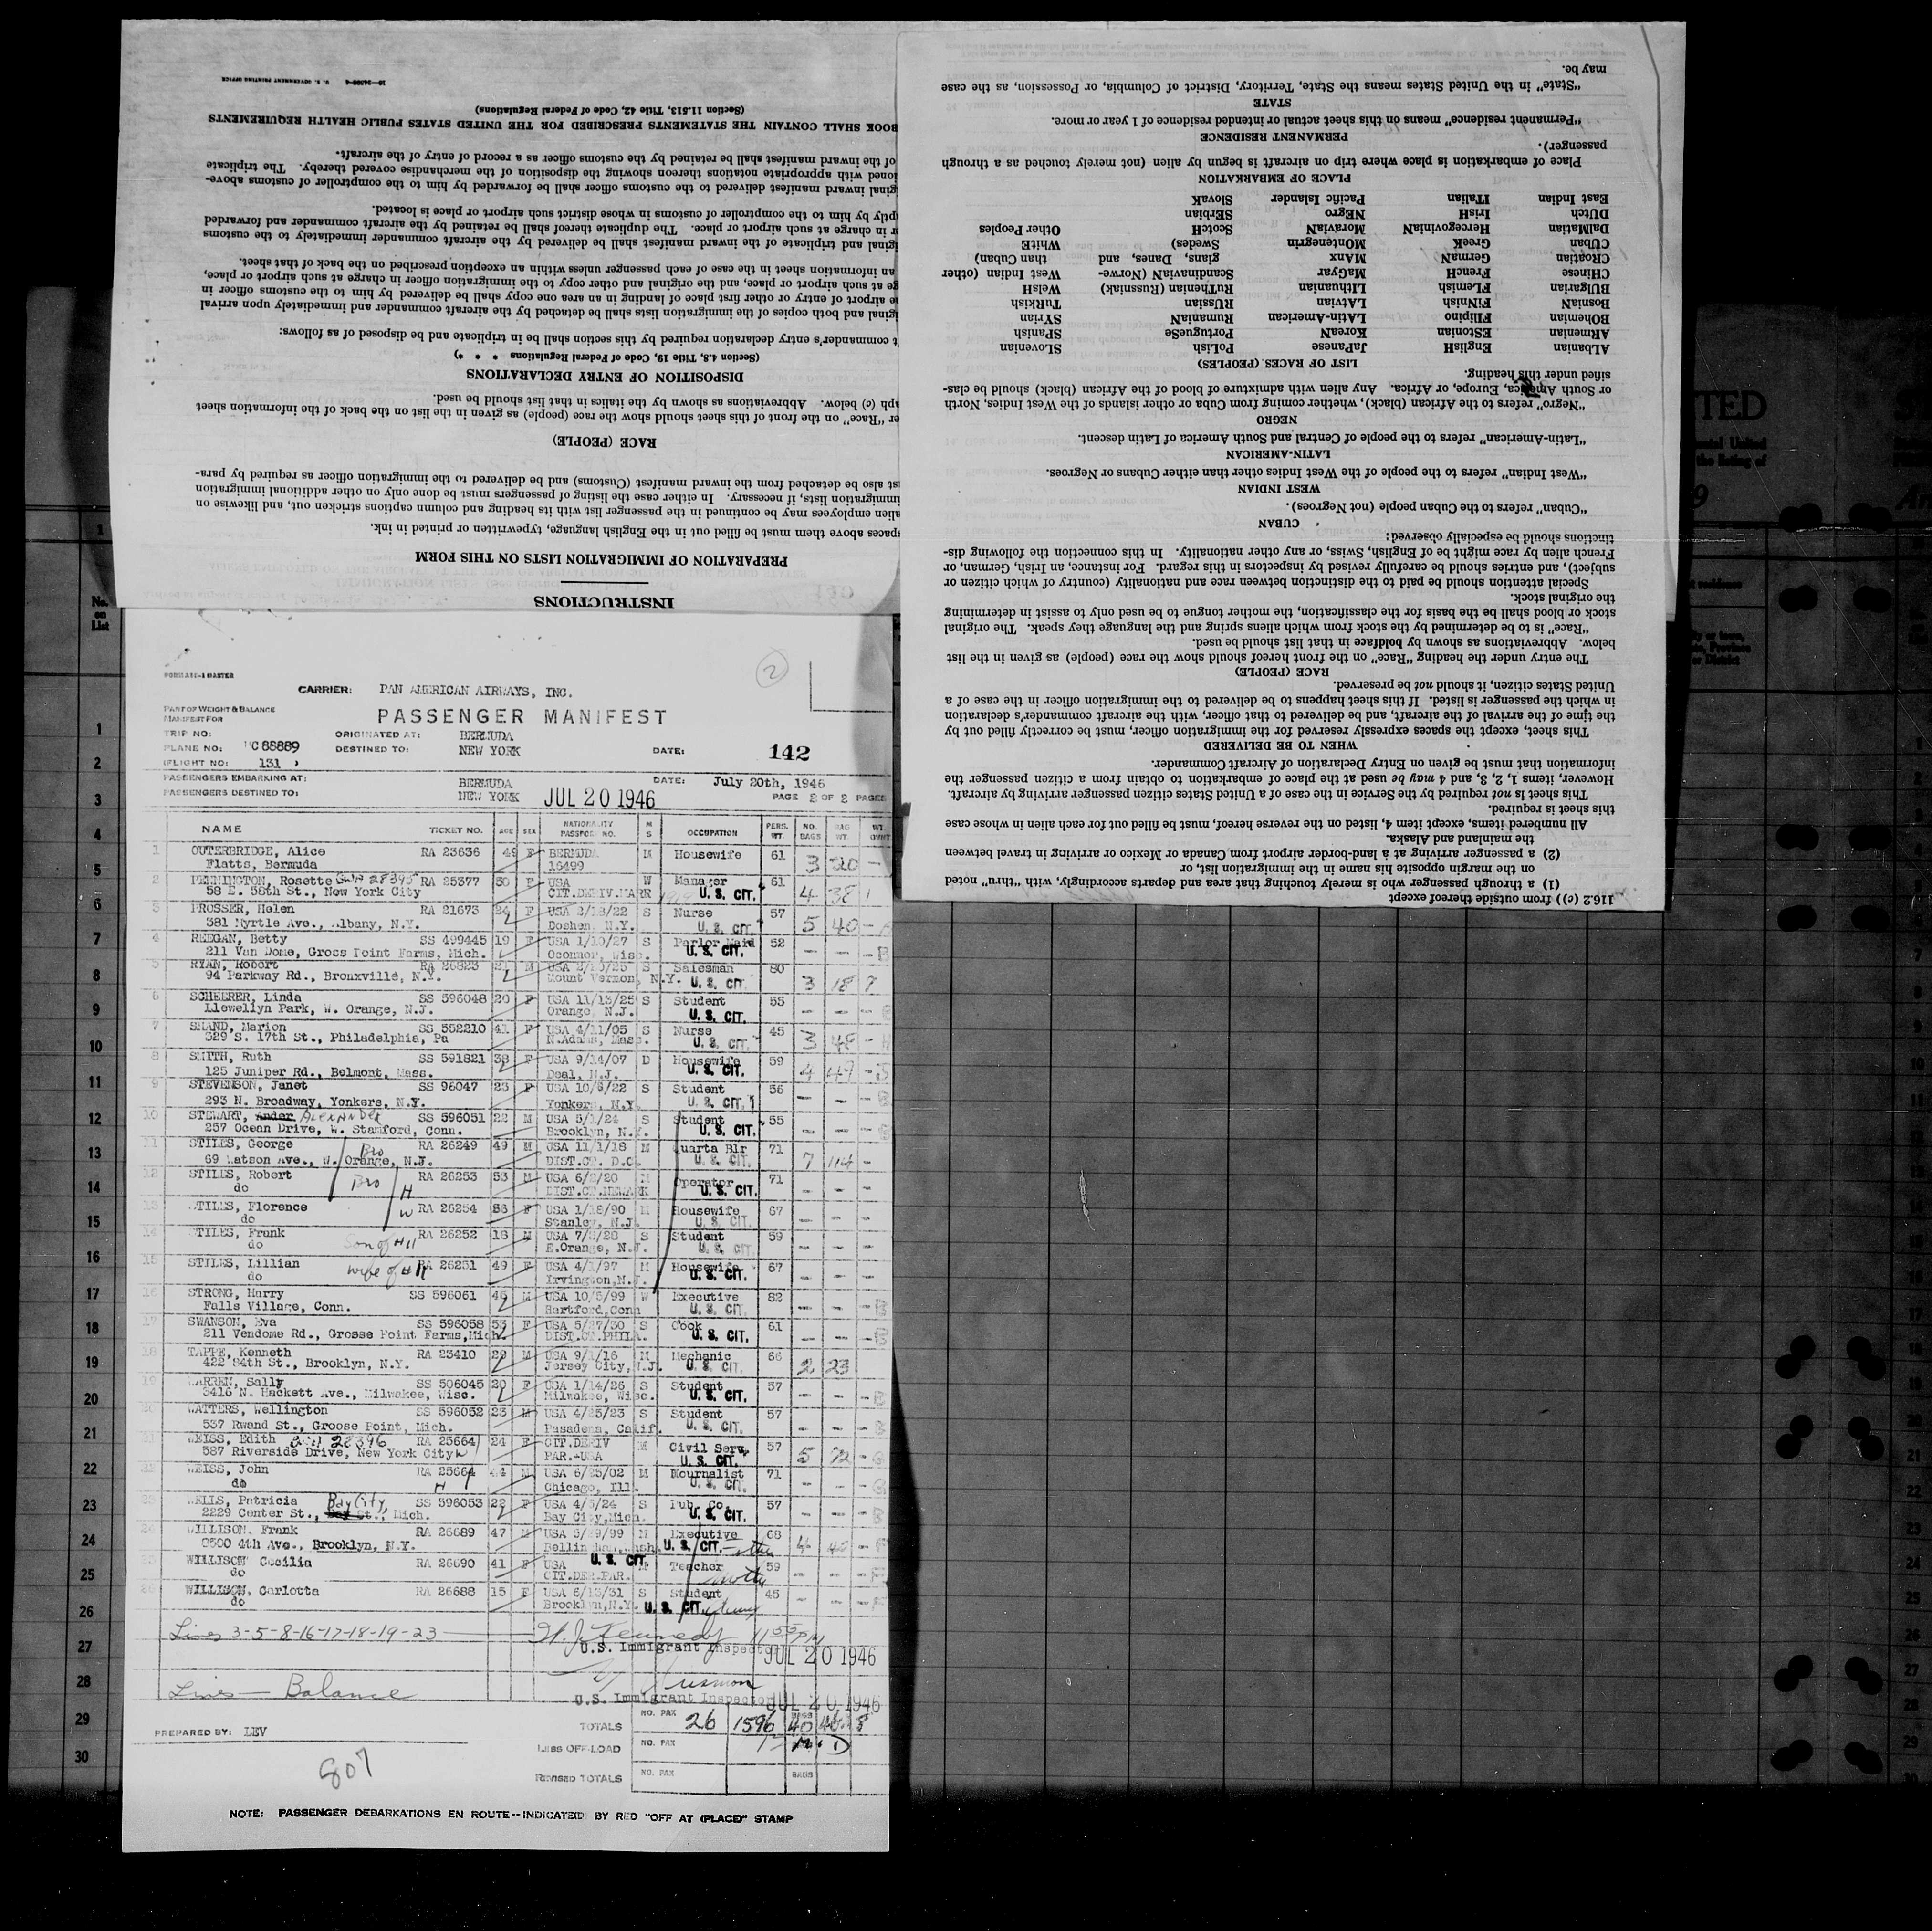 16—24309-4 U. S. GOVERNMENT PRINTING OFFICE
(Section 11.513, Title 42, Code of Federal Regulations)
BOOK SHALL CONTAIN THE STATEMENTS PRESCRIBED FOR THE UNITED STATES PUBLIC HEALTH REQUIREMENTS
of the inward manifest shall be retained by the customs officer as a record of entry of the aircraft.
ioned with appropriate notations thereon showing the disposition of the merchandise covered thereby. The triplicate
ginal inward manifest delivered to the customs officer shall be forwarded by him to the comptroller of customs above-
ptly by him to the comptroller of customs in whose district such airport or place is located.
r in charge at such airport or place. The duplicate thereof shall be retained by the aircraft commander and forwarded
ginal and triplicate of the inward manifest shall be delivered by the aircraft commander immediately to the customs
an information sheet in the case of each passenger unless within an exception prescribed on the back of that sheet.
ge at such airport or place, and the original and other copy to the immigration officer in charge at such airport or place,
e airport of entry or other first place of landing in an area one copy shall be delivered by him to the customs officer in
ginal and both copies of the immigration lists shall be detached by the aircraft commander and immediately upon arrival
t commander's entry declaration required by this section shall be in triplicate and be disposed of as follows:
(Section 4.8, Title 19, Code of Federal Regulations * * *)
DISPOSITION OF ENTRY DECLARATIONS
aph (c) below. Abbreviations as shown by the italics in that list should be used.
er "Race" on the front of this sheet should show the race (people) as given in the list on the back of the information sheet
RACE (PEOPLE)
st also be detached from the inward manifest (Customs) and be delivered to the immigration officer as required by para-
immigration lists, if necessary. In either case the listing of passengers must be done only on other additional immigration
alien employees may be continued in the passenger list with its heading and column captions stricken out, and likewise on
spaces above them must be filled out in the English language, typewritten or printed in ink.
PREPARATION OF IMMIGRATION LISTS ON THIS FORM
INSTRUCTIONS
may be.
"State" in the United States means the State, Territory, District of Columbia, or Possession, as the case
STATE
"Permanent residence" means on this sheet actual or intended residence of 1 year or more.
PERMANENT RESIDENCE
passenger).
Place of embarkation is place where trip on aircraft is begun by alien (not merely touched as a through
PLACE OF EMBARKATION
East Indian ITalian Pacific Islander SlovaK
DUtch IrisH NEgro SErbian
DalMatian HercegoviniaN MoraviaN ScotcH Other Peoples
CUban GreeK MOntenegrin Swedes) WhitE
CRoatian GermaN MAnx gians, Danes, and than Cuban)
CHinese FrencH MaGyar ScandinaviaN (Norwe- West Indian (other
BUlgarian FLemish LIthuanian RuThenian (Russniak) WelsH
BosniaN FiNnish LAtvian RUssian TuRkish
BOhemian FIlipino LAtin-American RumaniaN SYrian
ARmenian EStonian KoreaN PortugueSe SPanish
ALbanian EnglisH JaPanese PoLish SLOvenian
LIST OF RACES (PEOPLES)
sified under this heading.
or South America, Europe, or Africa. Any alien with admixture of blood of the African (black) should be clas-
"Negro" refers to the African (black), whether coming from Cuba or other islands of the West Indies, North
NEGRO
"Latin-American" refers to the people of Central and South America of Latin descent.
LATIN-AMERICAN
"West Indian" refers to the people of the West Indies other than either Cubans or Negroes.
WEST INDIAN
"Cuban" refers to the Cuban people (not Negroes).
CUBAN
tinctions should be especially observed:
French alien by race might be of English, Swiss, or any other nationality. In this connection the following dis-
subject), and entries should be carefully revised by inspectors in this regard. For instance, an Irish, German, or
Special attention should be paid to the distinction between race and nationality (country of which citizen or
the original stock.
stock or blood shall be the basis for the classification, the mother tongue to be used only to assist in determining
"Race" is to be determined by the stock from which aliens spring and the language they speak. The original
below. Abbreviations as shown by boldface in that list should be used.
The entry under the heading "Race" on the front hereof should show the race (people) as given in the list
RACE (PEOPLE)
United States citizen, it should not be preserved.
in which the passenger is listed. If this sheet happens to be delivered to the immigration officer in the case of a
the time of the arrival of the aircraft, and be delivered to that officer, with the aircraft commander's declaration
This sheet, except the spaces expressly reserved for the immigration officer, must be correctly filled out by
WHEN TO BE DELIVERED
information that must be given on Entry Declaration of Aircraft Commander.
However, items 1, 2, 3, and 4 may be used at the place of embarkation to obtain from a citizen passenger the
This sheet is not required by the Service in the case of a United States citizen passenger arriving by aircraft.
this sheet is required.
All numbered items, except item 4, listed on the reverse hereof, must be filled out for each alien in whose case
the mainland and Alaska.
(2) a passenger arriving at a land-border airport from Canada or Mexico or arriving in travel between
on the margin opposite his name in the immigration list, or
(1) a through passenger who is merely touching that area and departs accordingly, with "thru" noted
116.2 (c)) from outside thereof except
2
CARRIER: PAN AMERICAN AIRWAYS, INC.
PART OF WEIGHT & BALANCE
MANIFEST FOR
PASSENGER MANIFEST
TRIP NO: ORIGINATED AT: BERMUDA
PLANE NO: NC 88889 DESTINED TO: NEW YORK DATE: 142
(FLIGHT NO: 131)
PASSENGERS EMBARKING AT: BERMUDA DATE: July 20th, 1946
PASSENGERS DESTINED TO: NEW YORK JUL 20 1946 PAGE 2 OF 2 PAGES
NAME TICKET NO. AGE SEX NATIONALITY PASSPORT NO. M S OCCUPATION PERS. WT. NO. BAGS BAG WT.
1 OUTERBRIDGE, Alice RA 23636 49 F BERMUDA M Housewife 61 3 20 -
Flatts, Bermuda 16499
2 PENNINGTON, Rosette RA 25377 50 F USA W Manager 61 4 38
58 E. 56th St., New York City CIT.DERIV.MARR U. S. CIT.
3 PROSSER, Helen RA 21673 24 F USA 2/18/22 S Nurse 57 5 40 -
381 Myrtle Ave., Albany, N.Y. Doshen, N.Y. U. S. CIT.
4 REEGAN, Betty SS 499445 19 F USA 1/10/27 S Parlor Maid 52 - - -
211 Van Dome, Gross Point Farms, Mich. Oconnor, Wisc. U. S. CIT.
5 RYAN, Robert RA 26823 21 M USA 2/20/25 S Salesman 80 3 18
94 Parkway Rd., Bronxville, N.Y. Mount Vernon, N.Y. U. S. CIT.
6 SCHEERER, Linda SS 596048 20 F USA 11/13/25 S Student 55 - - -
Llewellyn Park, W. Orange, N.J. Orange, N.J. U. S. CIT.
7 SHAND, Marion SS 552210 41 F USA 4/11/05 S Nurse 45 3 48 -
329 S. 17th St., Philadelphia, Pa N.Adams, Mass. U. S. CIT.
8 SMITH, Ruth SS 591821 38 F USA 9/14/07 D Housewife 59 4 49 -
125 Juniper Rd., Belmont, Mass. Deal, N.J. U. S. CIT.
9 STEVENSON, Janet SS 96047 23 F USA 10/6/22 S Student 56 - - -
293 N. Broadway, Yonkers, N.Y. Yonkers, N.Y. U. S. CIT.
10 STEWART, Ander Alexander SS 596051 22 M USA 5/1/24 S Student 55 - - -
257 Ocean Drive, W. Stamford, Conn. Brooklyn, N.Y. U. S. CIT.
11 STILES, George Bro RA 26249 49 M USA 11/1/18 M Quarta Blr 71 7 114 -
69 Watson Ave., W. Orange, N.J. DIST.CT. D.C. U. S. CIT.
12 STILES, Robert Bro H RA 26253 53 M USA 6/2/20 M Operator 71 - - -
do DIST.CT.NEWARK U. S. CIT.
13 STILES, Florence W RA 26254 56 F USA 1/18/90 M Housewife 67 - - -
do Stanley, N.J. U. S. CIT.
14 STILES, Frank Son of #11 RA 26252 18 M USA 7/5/28 S Student 59 - - -
do E.Orange, N.J. U. S. CIT.
15 STILES, Lillian wife of #11 RA 26251 49 F USA 4/1/97 M Housewife 67 - - -
do Irvington,N.J. U. S. CIT.
16 STRONG, Harry SS 596061 46 M USA 10/5/99 W Executive 82 - - -
Falls Village, Conn. Hartford,Conn U. S. CIT.
17 SWANSON, Eva SS 596058 53 F USA 5/27/30 S Cook 61 - - -
211 Vendome Rd., Grosse Point Farms,Mich. DIST.CT.PHILA. U. S. CIT.
18 TAPPE, Kenneth RA 23410 29 M USA 9/1/16 M Mechanic 66 2 23
422 84th St., Brooklyn, N.Y. Jersey City, N.J. U. S. CIT.
19 WARREN, Sally SS 506045 20 F USA 1/14/26 S Student 57 - - -
3416 N. Hackett Ave., Milwakee, Wisc. Milwakee, Wisc. U. S. CIT.
20 WATTERS, Wellington SS 596052 23 M USA 4/25/23 S Student 57 - - -
537 Rwand St., Groose Point, Mich. Pasadena, Calif. U. S. CIT.
21 WEISS, Edith 28396 RA 25664 24 F CIT.DERIV M Civil Serv. 57 5 72 -
587 Riverside Drive, New York City W PAR.-USA U. S. CIT.
22 WEISS, John H RA 25664 44 M USA 6/25/02 M Mournalist 71 - - -
do Chicago, Ill. U. S. CIT.
23 WELLS, Patricia Bay City, SS 596053 22 F USA 4/5/24 S Pub. Co. 57 - - -
2229 Center St., Bay St., Mich. Bay City,Mich. U. S. CIT.
24 WILLISON, Frank RA 26689 47 M USA 5/29/99 M Executive 68 4 -
9500 4th Ave., Brooklyn, N.Y. U. S. CIT.
25 WILLISON Cecilia RA 26690 41 F USA U. S. CIT. M Teacher 59 - - -
do CIT.DER.PAR.
26 WILLISON, Carlotta RA 26688 15 F USA 6/13/31 S Student 45 - - -
do Brooklyn,N.Y. U. S. CIT.
Lines 3-5-8-16-17-18-19-23 H. J. Kennedy
U.S. Immigrant Inspector JUL 20 1946
Lines — Balance
U.S. Immigrant Inspector JUL 20 1946
TOTALS NO. PAX 26 1596 BAGS 40
PREPARED BY: LEV
LESS OFF-LOAD NO. PAX
807
REVISED TOTALS NO. PAX BAGS
NOTE: PASSENGER DEBARKATIONS EN ROUTE--INDICATED BY RED "OFF AT (PLACE)" STAMP
No. on List
1
2
3
4
5
6
7
8
9
10
11
12
13
14
15
16
17
18
19
20
21
22
23
24
25
26
27
28
29
30